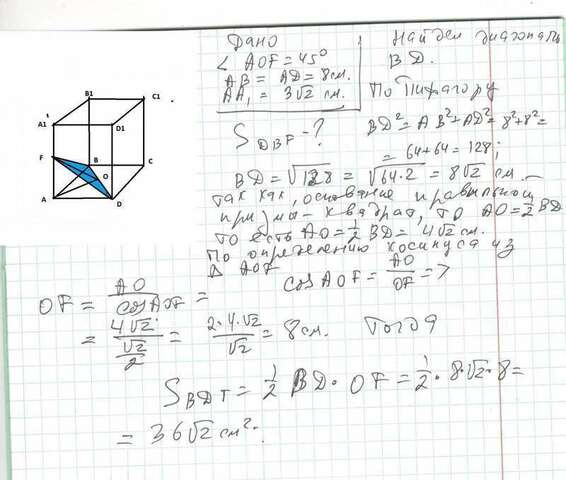 Дано
∠ AOF = 45°
AB = AD = 8 см.
AA₁ = 3√2 см.
S DBF - ?
Найдем диагональ
BD.
По Пифагору
BD² = AB² + AD² = 8² + 8² =
= 64 + 64 = 128;
BD = √128 = √64·2 = 8√2 см.
так как, основание правильной
призмы - квадрат, то AO = ½ BD
то есть AO = ½ BD = 4√2 см.
По определению косинуса из
Δ AOF
cos AOF = AO/OF =>
OF = AO/cos AOF =
= 4√2/(√2/2) = 2·4·√2/√2 = 8 см. Тогда
S BDF = ½ BD · OF = ½ · 8·√2·8 =
= 36√2 см².
B1
C1
A1
D1
F
B
C
O
A
D